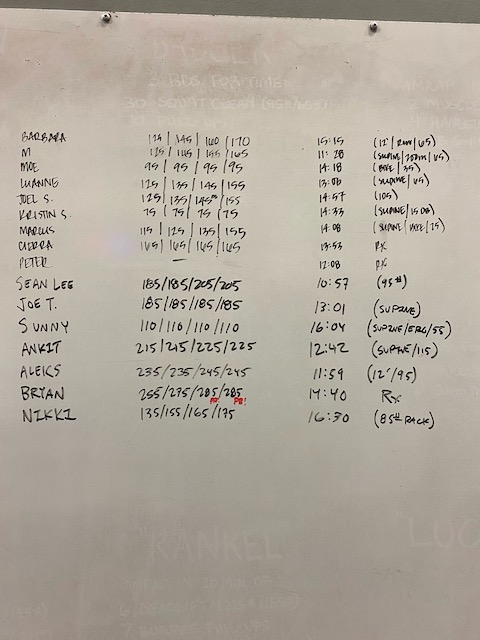 30 SQUAT CLEAN
BARBARA 125 | 145 | 160 | 170 15:15 (12' / ROW / 65)
M 125 | 145 | 155 | 165 11:28 (SUPINE / 200M / 65)
MOE 95 | 95 | 95 | 95 14:18 (BIKE / 35)
LUANNE 125 | 135 | 145 | 155 13:06 (SUPINE / 65)
JOEL S. 125 | 135 | 145 | 155 14:57 (105)
KRISTIN S. 75 | 75 | 75 | 75 14:33 (SUPINE / 15 DB)
MARCUS 115 | 125 | 135 | 155 14:08 (SUPINE / BIKE / 75)
CIERRA 165 | 165 | 165 | 165 13:53 RX
PETER — 12:08 RX
SEAN LEE 185/185/205/205 10:57 (95#)
JOE T. 185/185/185/185 13:01 (SUPINE)
SUNNY 110/110/110/110 16:04 (SUPINE/ERG/55)
ANKIT 215/215/225/225 12:42 (SUPINE/115)
ALEKS 235/235/245/245 11:59 (12'/95)
BRYAN 255/275/285/285 14:40 Rx
PR! PR!
NIKKI 135/155/165/175 16:30 (85# RACK)
"RANKEL"
"LUC